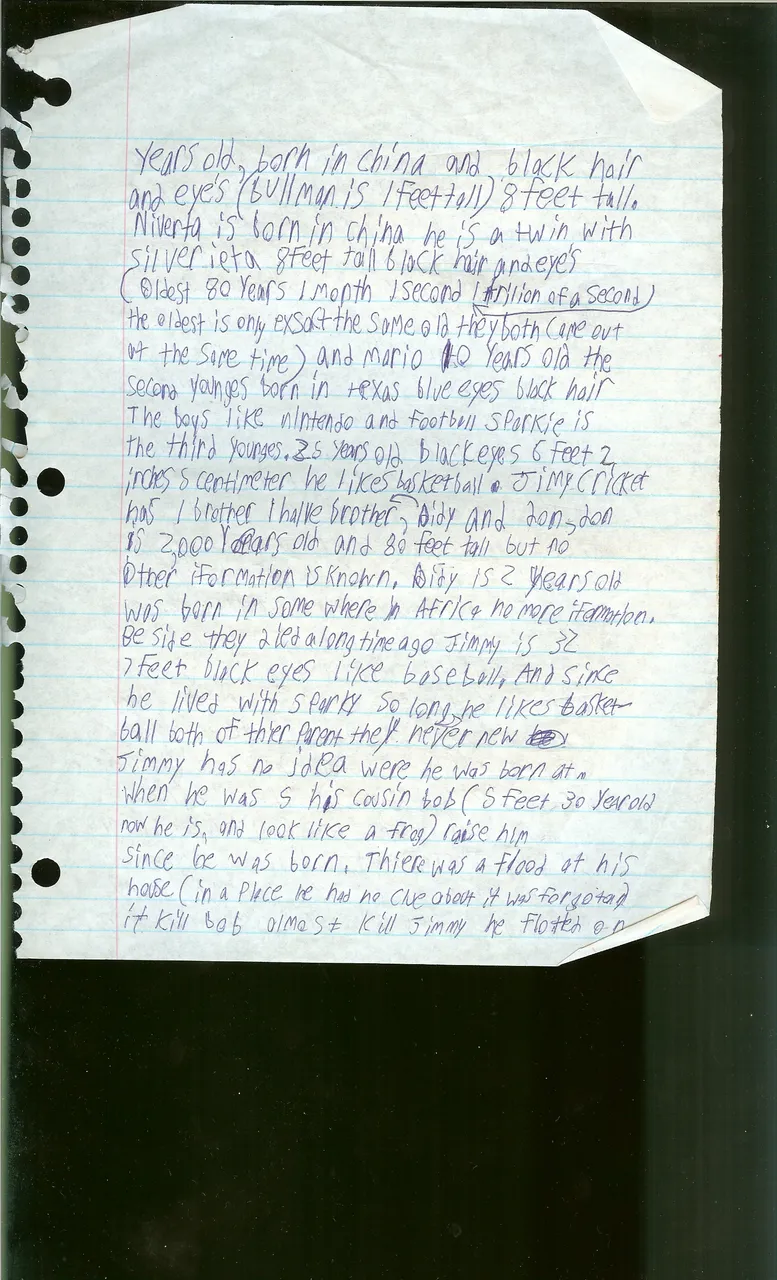 years old, born in china and black hair
and eye's (bullman is 1 feet tall) 8 feet tall.
Niverta is born in china he is a twin with
silver ieta 8 feet tall black hair and eye's
(Oldest 80 Years 1 month 1 second 1 trilion of a second)
the oldest is only exsact the same old they both came out
at the same time) and mario 10 Years old the
second younges born in texas blue eyes black hair
The boys like nintendo and football sparkie is
the third younges. 35 years old black eyes 6 feet 2
inches 5 centimeter he likes basketball. Jimy Cricket
has 1 brother 1 halve brother, Didy and don, don
is 2,000 Years old and 80 feet tall but no
other iformation is known. Didy is 2 years old
was born in some where in Africa no more iformation.
Be side they died a long time ago Jimmy is 32
7 feet black eyes like baseball, And since
he lived with sparky so long, he likes basket
ball both of thier parent they never new
Jimmy has no idea were he was born at.
when he was 5 his cousin bob (5 feet 30 Year old
now he is, and look like a frog) raise him
since he was born. Thiere was a flood at his
house (in a place he had no clue about it was forgotad
it kill bob almost kill Jimmy he floted on